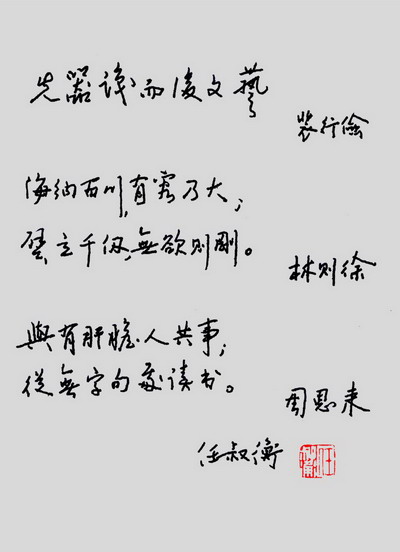 先器識而後文藝
裴行儉
海納百川,有容乃大;
壁立千仞,無欲则剛。
林则徐
與有肝膽人共事;
從無字句處读书。
周恩来
任叔衡